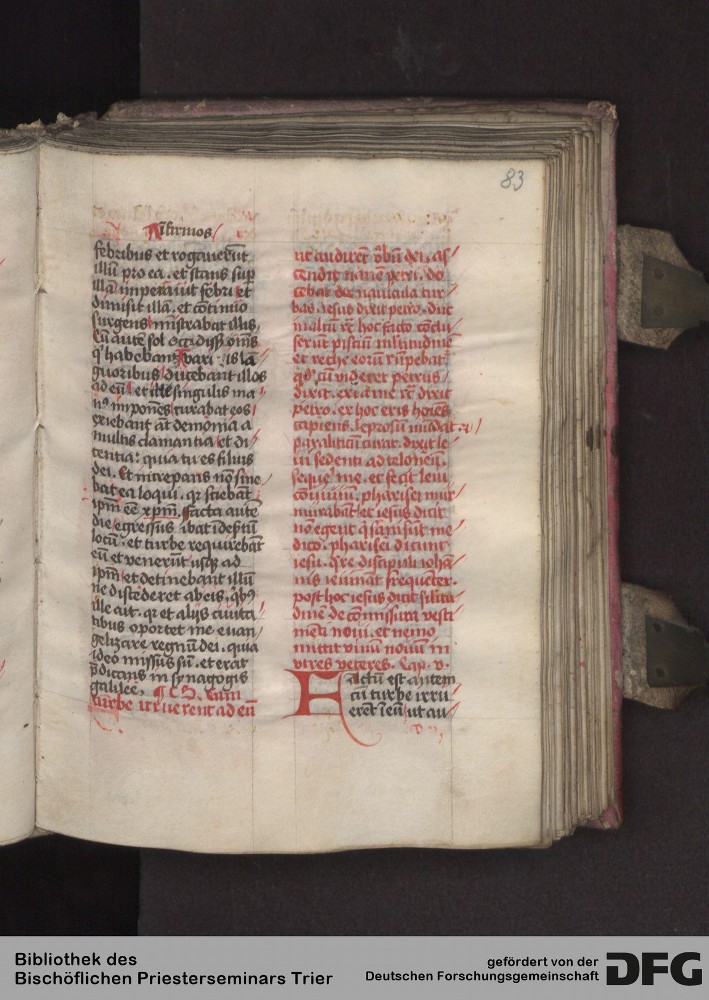 83
Infirmos
febribus et rogauerūt
illū pro ea. et stans sup
illā imperauit febri et
dimisit illā. et cōtinuo
surgens mīstrabat illis.
Cū autē sol occidisset om̄s
qͥ habebant varijs lā
guoribus ducebant illos
ad eū. et ille singulis ma
nꝰ imponēs curabat eos
exiebant āt demonia a
multis clamantia et di
centia: quia tu es filius
dei. Et increpans nō sine
bat ea loqui. qr sciebant
ipm̄ eē xpm̄. facta autē
die egressus ibat ī desertū
locū. et turbe requirebāt
eū et venerūt usqꝫ ad
ipm̄ et detinebant illū
ne discederet ab eis. qͥbꝰ
ille ait. qr et alijs ciuita
tibus oportet me euan
gelizare regnū dei. quia
ideo missus sū. et erat
p̄dicans in synagogis
galilee.
turbe irruerent ad eū
ut audirēt ūbū dei. as
cendit nauē petri. do
cebat de nauicula tur
bas. iesus dixit petro. duc
in altū rē hoc facto cōclu
serūt pisciū multitudinē
et rethe eorū rūpebat
qd̓ cū videret petrus
dixit. exi a me rē dixit
petro. ex hoc eris hoīes
capiens. leprosū mūdat. et
paraliticū curat. dixit le
ui sedenti ad teloneū.
sequere me. et fecit leui
cōuiuiū. pharisei mur
murabāt et iesus dicit
nō egent qͥ sani sūt me
dico. pharisei dicunt
iesu. qͬre discipuli iohā
nis ieiunāt frequēter.
post hoc iesus dicit silitu
dinē de cōmissura vesti
mēti noui. et nemo
mittit vinū nouū in
vtres veteres. Cap. v.
Factū est autem
cū turbe irru
erēt ī eū ut au
Bibliothek des
Bischöflichen Priesterseminars Trier
gefördert von der
Deutschen Forschungsgemeinschaft
DFG